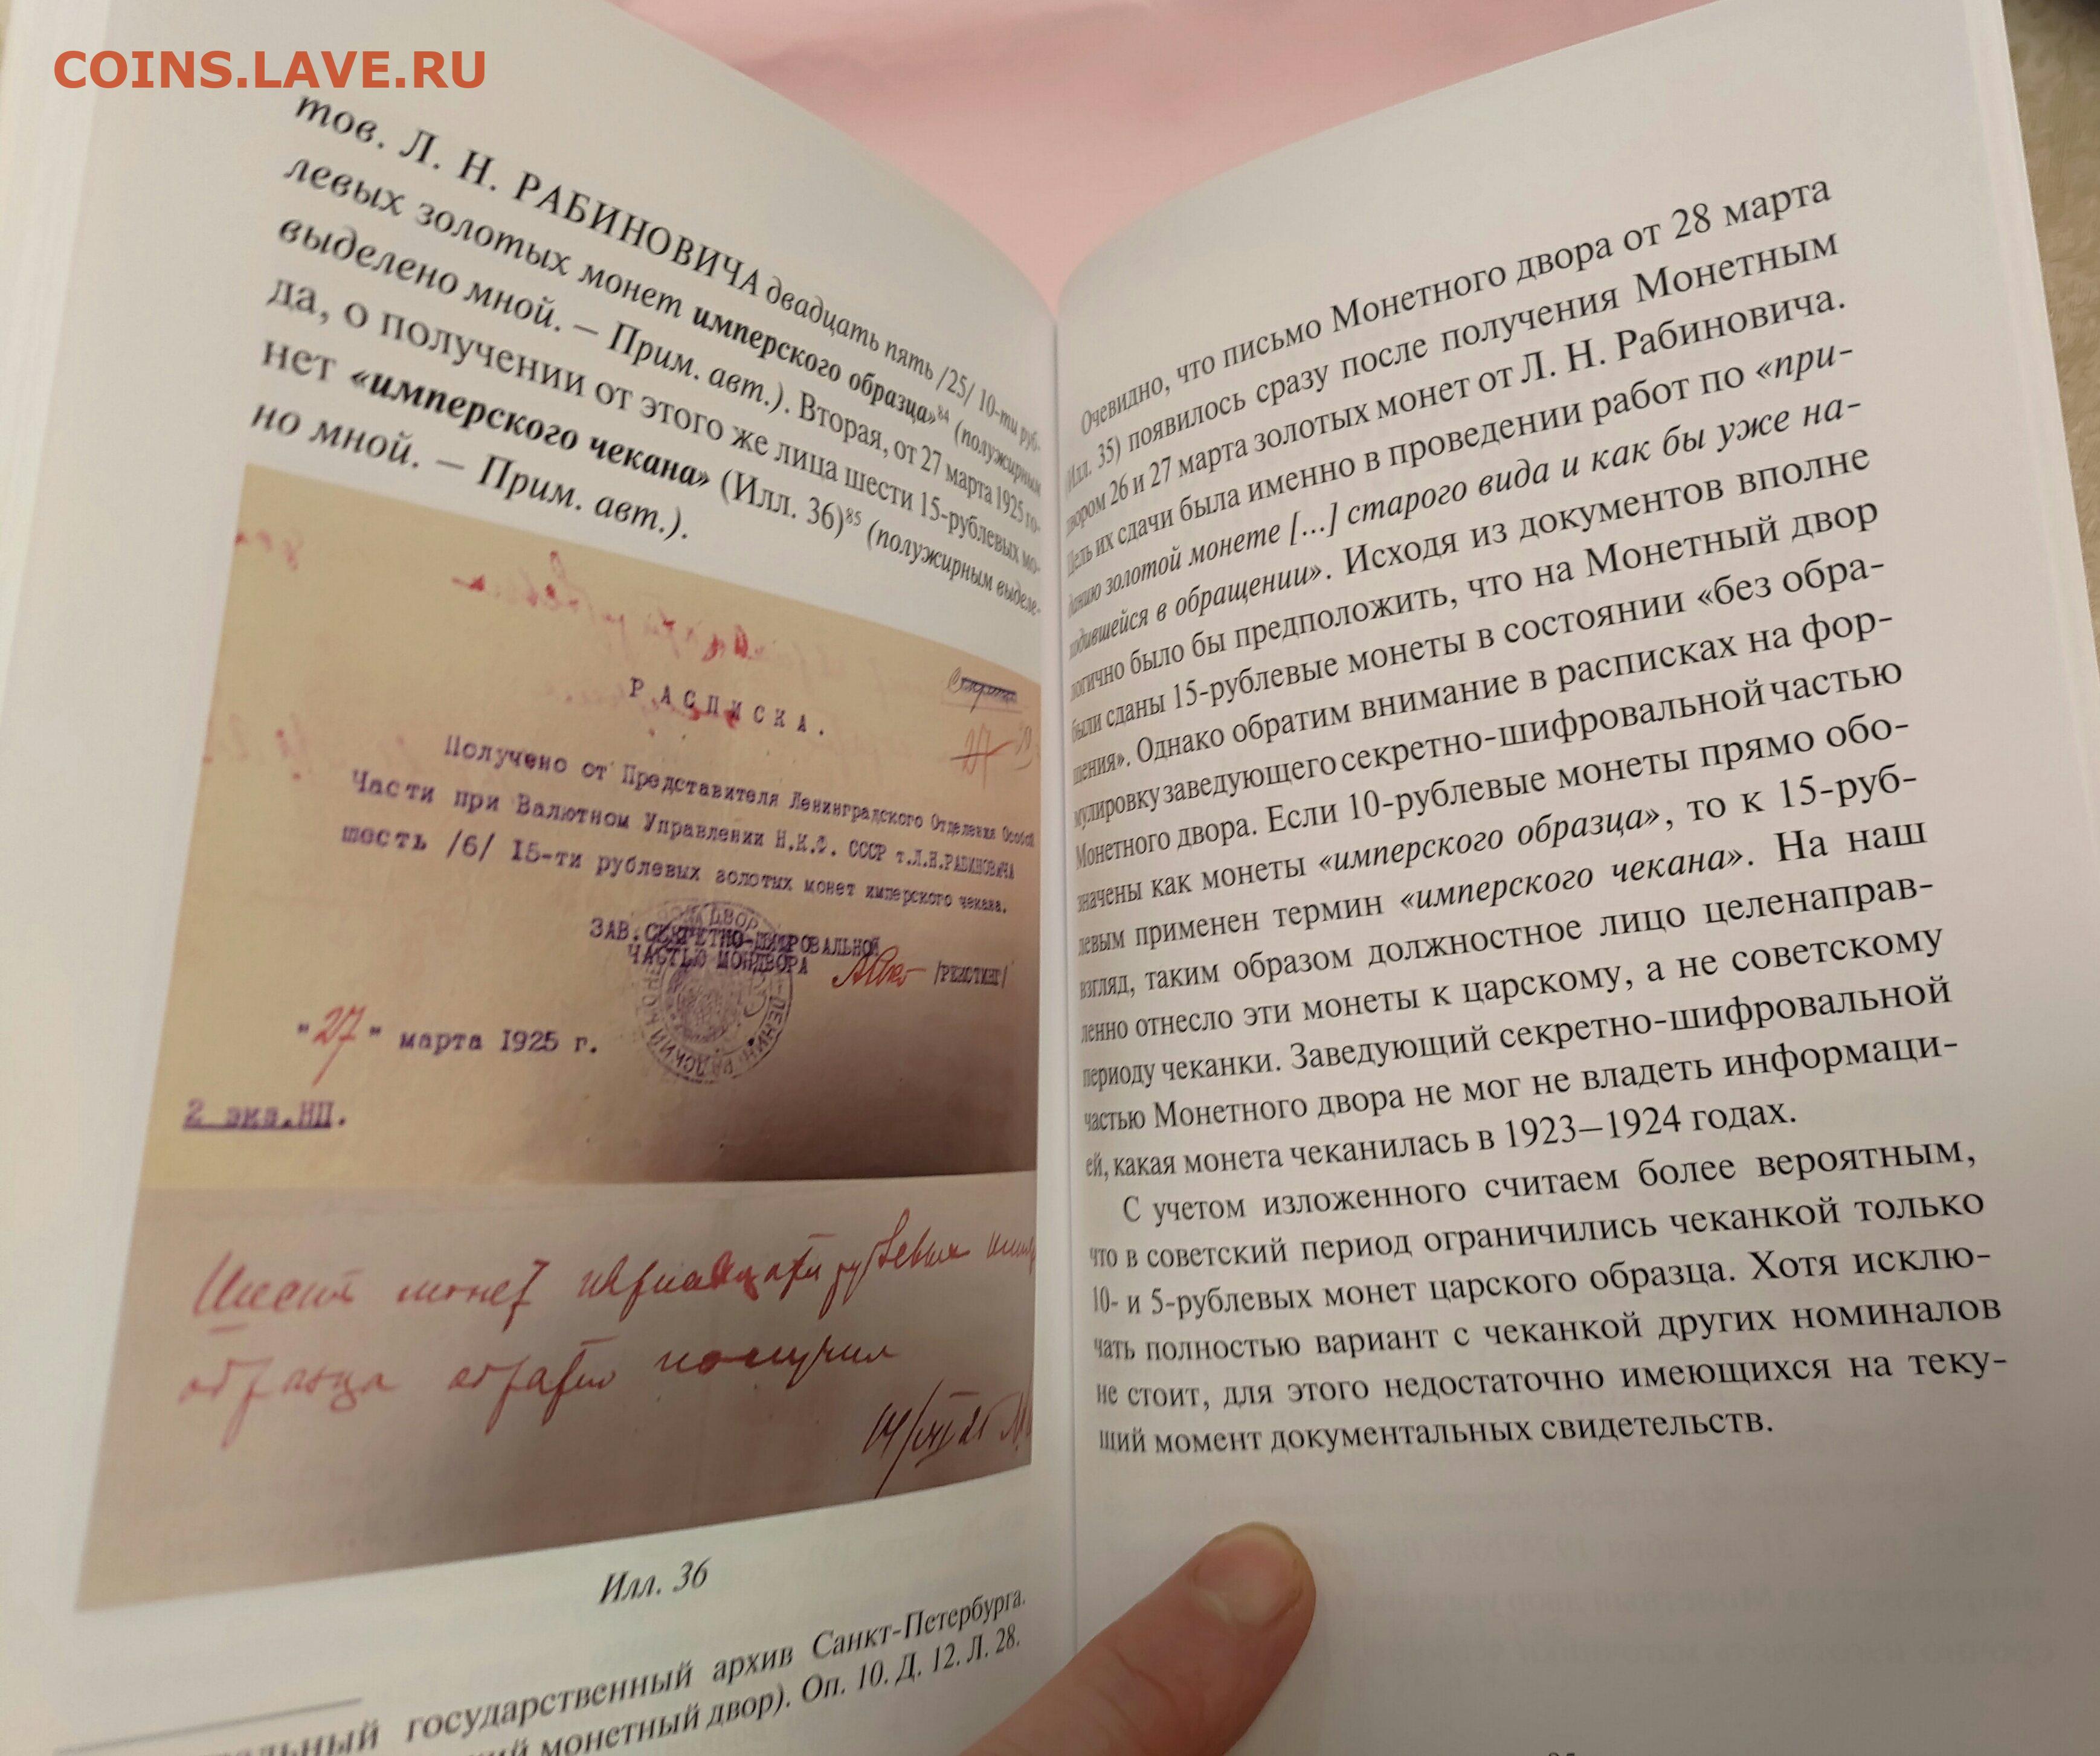 COINS.LAVE.RU
тов. Л. Н. РАБИНОВИЧА двадцать пять /25/ 10-ти руб-
левых золотых монет имперского образца»84 (полужирным
выделено мной. – Прим. авт.). Вторая, от 27 марта 1925 го-
да, о получении от этого же лица шести 15-рублевых мо-
нет «имперского чекана» (Илл. 36)85 (полужирным выделе-
но мной. – Прим. авт.).
РАСПИСКА.
Получено от Представителя Ленинградского Отделения Особой
Части при Валютном Управлении Н.К.Ф. СССР т.Л.Н.РАБИНОВИЧА
шесть /6/ 15-ти рублевых золотых монет имперского чекана.
ЗАВ.СЕКРЕТНО-ШИФРОВАЛЬНОЙ
ЧАСТЬЮ МОНДВОРА
"27" марта 1925 г.
2 экз.НП.
Шесть монет пятнадцати рублевых
образца обратно получил
Илл. 36
государственный архив Санкт-Петербурга.
монетный двор). Оп. 10. Д. 12. Л. 28.
Очевидно, что письмо Монетного двора от 28 марта
(Илл. 35) появилось сразу после получения Монетным
двором 26 и 27 марта золотых монет от Л. Н. Рабиновича.
Цель их сдачи была именно в проведении работ по «при-
данию золотой монете [...] старого вида и как бы уже на-
ходившейся в обращении». Исходя из документов вполне
логично было бы предположить, что на Монетный двор
были сданы 15-рублевые монеты в состоянии «без обра-
щения». Однако обратим внимание в расписках на фор-
мулировку заведующего секретно-шифровальной частью
Монетного двора. Если 10-рублевые монеты прямо обо-
значены как монеты «имперского образца», то к 15-руб-
левым применен термин «имперского чекана». На наш
взгляд, таким образом должностное лицо целенаправ-
ленно отнесло эти монеты к царскому, а не советскому
периоду чеканки. Заведующий секретно-шифровальной
частью Монетного двора не мог не владеть информаци-
ей, какая монета чеканилась в 1923–1924 годах.
С учетом изложенного считаем более вероятным,
что в советский период ограничились чеканкой только
10- и 5-рублевых монет царского образца. Хотя исклю-
чать полностью вариант с чеканкой других номиналов
не стоит, для этого недостаточно имеющихся на теку-
щий момент документальных свидетельств.